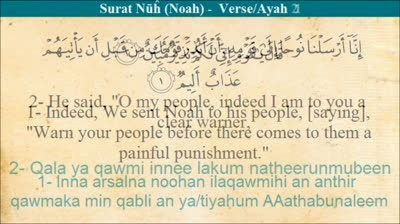 Surat Nūĥ (Noah) - Verse/Ayah
إِنَّا أَرْسَلْنَا نُوحًا أَنْ أَنذِرْ قَوْمَكَ مِن قَبْلِ أَن يَأْتِيَهُمْ
عَذَابٌ أَلِيمٌ ١
2- He said, "O my people, indeed I am to you a
1- Indeed, We sent Noah to his people, [saying],
clear warner,
"Warn your people before there comes to them a
painful punishment."
2- Qala ya qawmi innee lakum natheerunmubeen
1- Inna arsalna noohan ilaqawmihi an anthir
qawmaka min qabli an ya/tiyahum AAathabunaleem